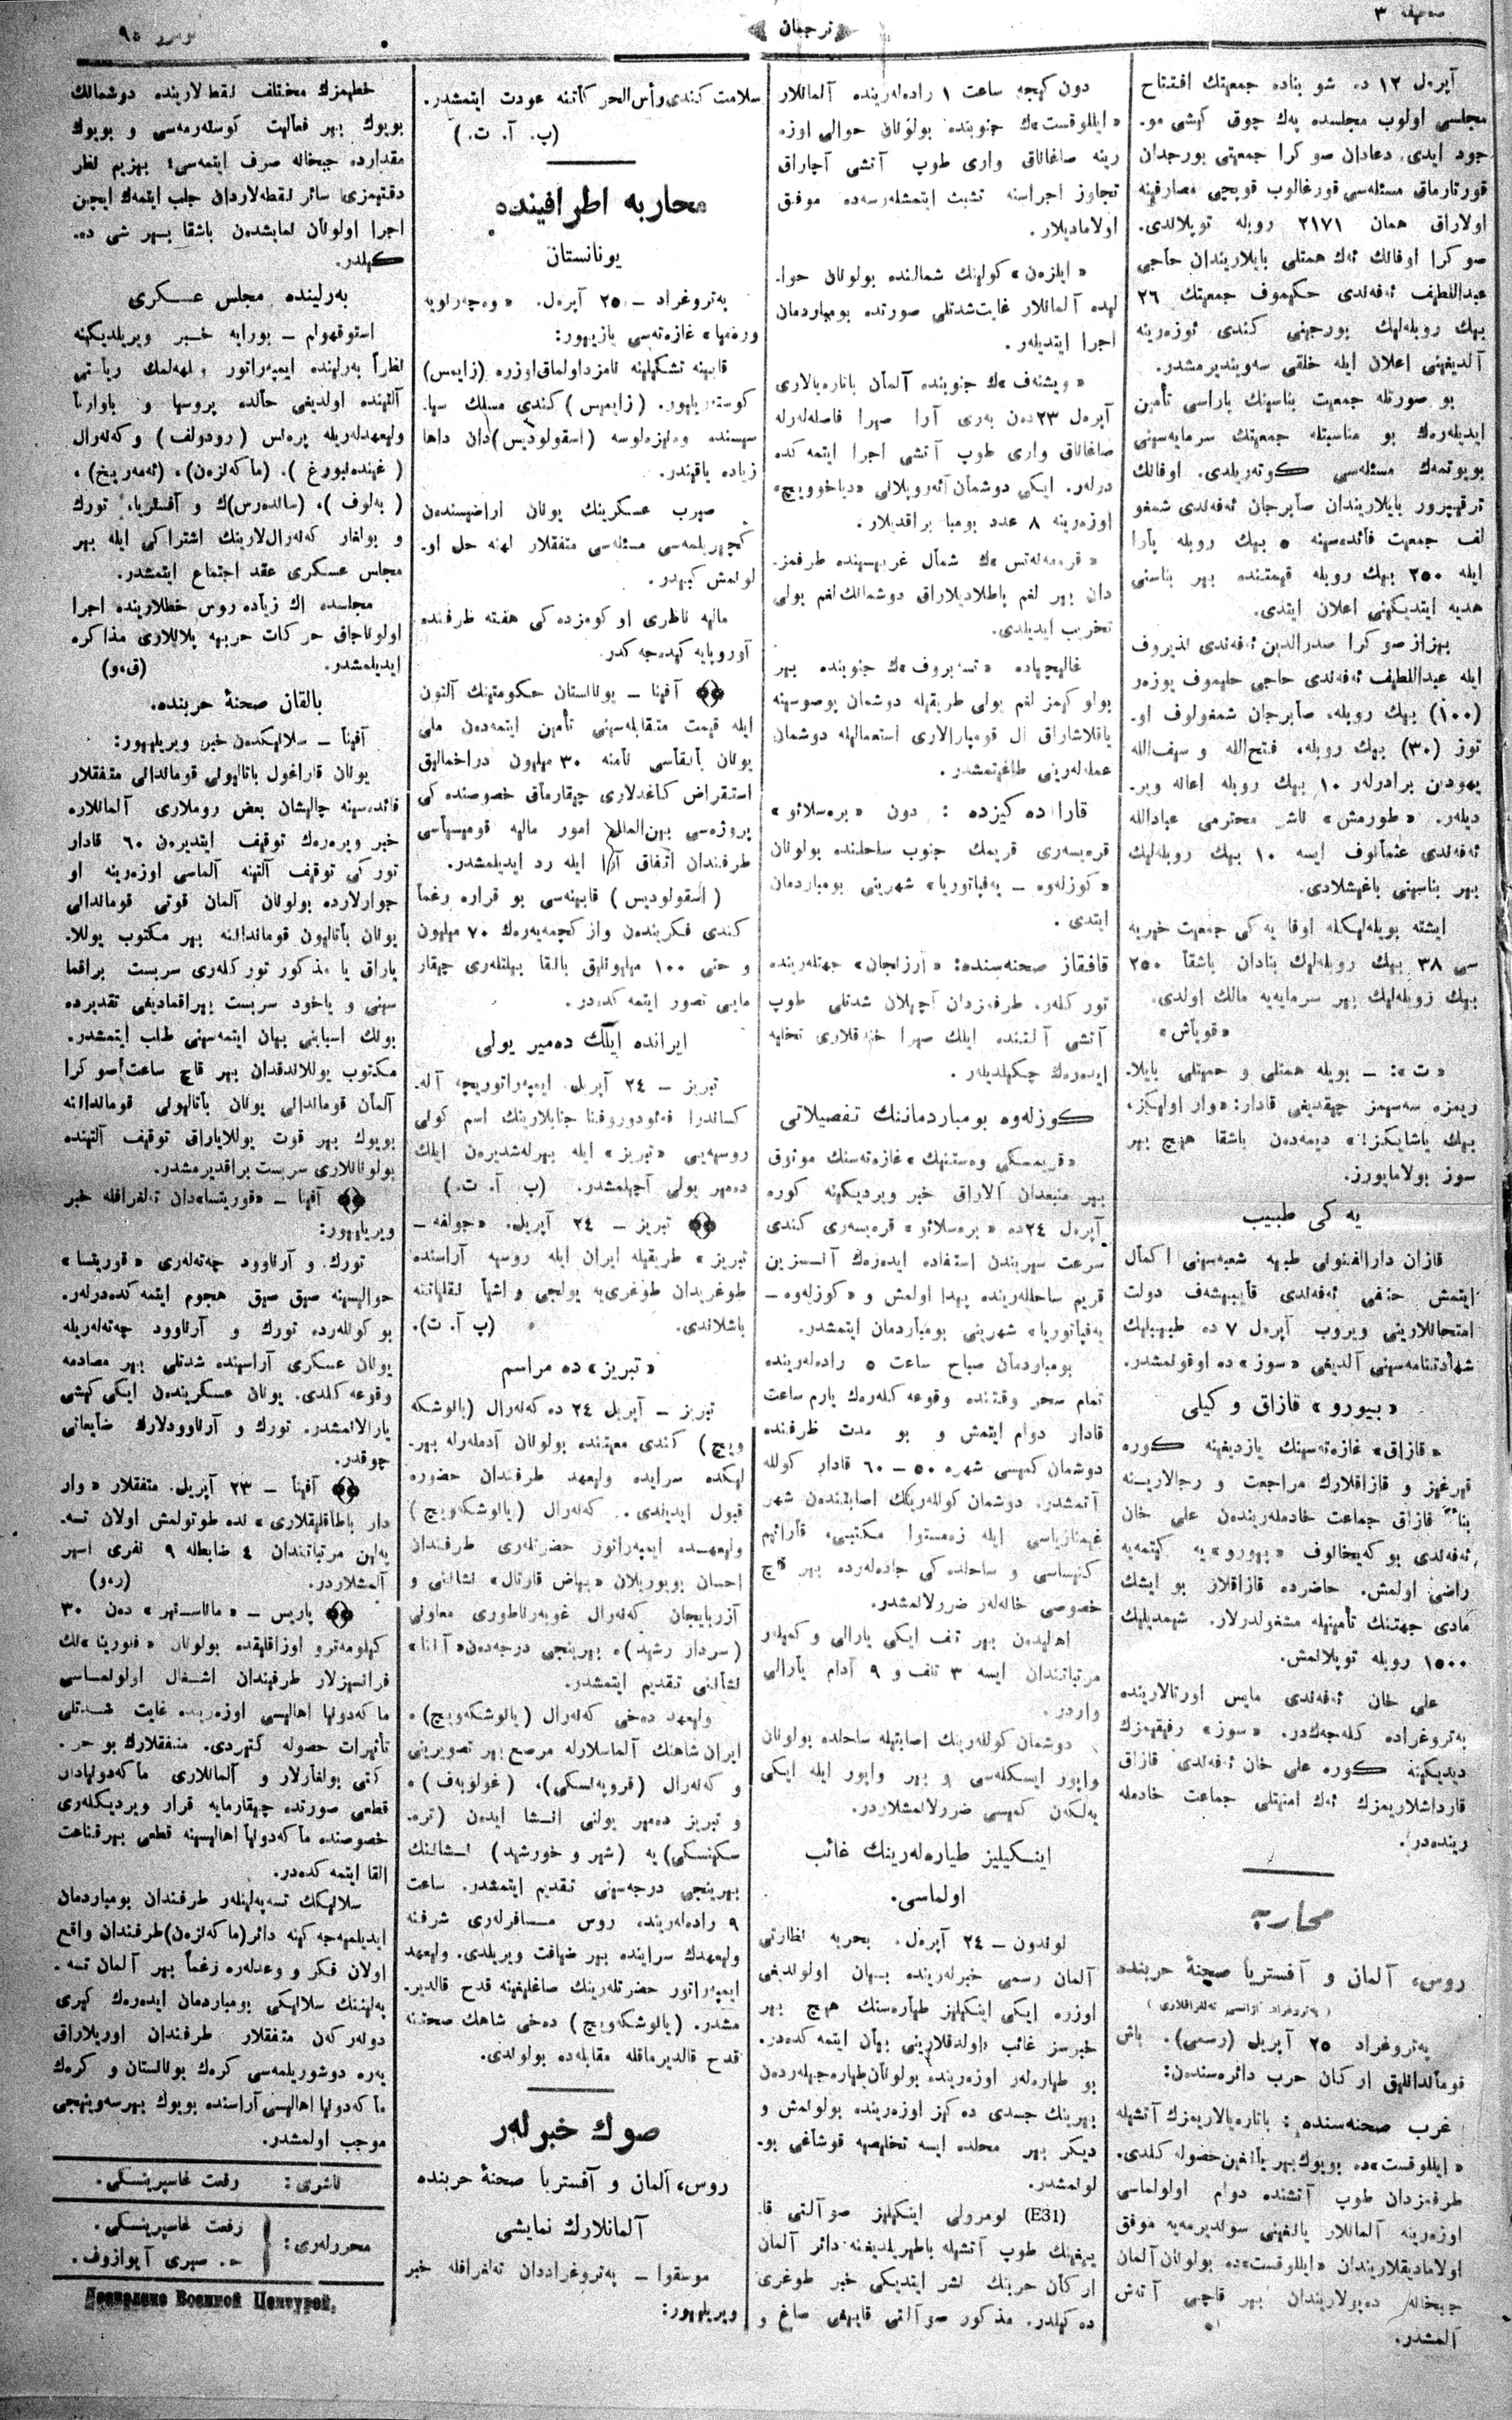 صحیفه ۳
ترجمان
نومرو ۹۵
آپرەل ۱۲ ده شو بناده جمعیتك افتتاح
مجلسی اولوب مجلسده پەك چوق كیشی مو-
جود ایدی. دعادان صوكرا جمعیتی بورجدان
قورتارماق مسئلەسی قوزغالوب قویجی مصارفینه
اولاراق همان ۲۱۷۱ روبله توپلاندی.
صوكرا اوفانك ئەك همتلی بایلاریندان حاجی
عبداللطیف ئەفەندی حكیموف جمعیتك ۲۶
بیك روبلەلیك بورجینی كندی ئوزەرینه
آلدیغنی اعلان ایله خلقی سەویندیرمشدر.
بو صورتله جمعیت بناسینك پاراسی تأمین
ایدیلەرەك بو مناسبتله جمعیتك سرمایەسینی
بویوتمەك مسئلەسی كوتەریلدی. اوفانك
ترقیپرور بایلاریندان صابرجان ئەفەندی شمغو
لف جمعیت فائدەسینه ۵ بیك روبله پارا
ایله ۲۵۰ بیك روبله قیمتنده بیر بناسنی
هدیه ایتدیكینی اعلان ایتدی.
بیرازصوكرا صدرالدین ئەفەندی نذیروف
ایله عبداللطیف ئەفەندی حاجی حلیموف یوزەر
(۱۰۰) بیك روبله، صابرجان شمغولوف او-
توز (۳۰) بیك روبله، فتح‌الله و سیف‌الله
یهودین برادرلەر ۱۰ بیك روبله اعانه ویر-
دیلەر. «طورمش» ناشر محترمی عبادالله
ئەفەندی عثمانوف ایسه ۱۰ بیك روبلەلیك
بیر بناسینی باغیشلادی.
ایشته بویلەلیكله اوفا یەكی جمعیت خیریه
سی ۳۸ بیك روبلەلیك بنادان باشقا ۲۵۰
بیك روبلەلیك بیر سرمایەیه مالك اولدی.
«قویاش»
«ت»: — بویله همتلی و حمیتلی بایلا-
ریمزه سەسیمز چیقدیغی قادار: «وار اولیكز،
بیك یاشایكز!» دیمەدن باشقا هیچ بیر
سوز بولامایورز.
یەكی طبیب
قازان دارالفنونی طبیه شعبەسینی اكمال
ایتمش حنفی ئەفەندی قاییبشەف دولت
امتحانلارینی ویروب آپرەل ۷ ده طبیبلیك
شهادتنامەسینی آلدیغی «سوز»ده اوقونمشدر.
«بیورو» قازاق وكیلی
«قازاق» غازەتەسینك یازدیغینه كوره
قیرغیز و قازاقلارك مراجعت و رجالارینه
بناءً قازاق جماعت خادملەریندن علی خان
ئەفەندی بوكەیخانوف «بیورو»یه كیتمەیه
راضی اولمش. حاضرده قازاقلار بو ایشك
مادی جهتنك تأمینیله مشغولدرلار. شیمدیلیك
۱۵۰۰ روبله توپلانمش.
علی خان ئەفەندی مایس اورتالارینده
پەتروغراده كلەجەكدر. «سوز» رفیقیمزك
دیدیكینه كوره علی خان ئەفەندی قازاق
قارداشلاریمزك ئەك امنیتلی جماعت خادملە
ریندەدر.
محاربه
روس، آلمان و آفستریا صحنهٔ حربنده
(پەتروغراد آژانسی تەلغرافلاری)
پەتروغراد ۲۵ آپریل (رسمی). باش
قوماندانلیق اركان حرب دائرەسندەن:
غرب صحنەسنده: باتارەیالاریمزك آتشیله
«ایللوقست»ده بویوك بیر یانغین حصوله كلدی.
طرفمزدان طوپ آتشنده دوام اولولماسی
اوزەرینه آلمانلار یانغینی سوندیرمەیه موفق
اولامادیقلاریندان «ایللوقست»ده بولونان آلمان
جبخانه دەپولاریندان بیر قاچی آتەش
آلمشدر.
دون كیجه ساعت ۱ رادەلەرینده آلمانلار
«ایللوقست»ك جنوبنده بولونان حوالی اوزه
رینه صاغاناق واری طوپ آتشی آچاراق
تجاوز اجراسنه تشبث ایتمشلەرسەده موفق
اولامادیلار.
«ایلزەن» كولینك شمالنده بولونان حوا-
لیده آلمانلار غایت شدتلی صورتده بومباردمان
اجرا ایتدیلەر.
«ویشنەف»ك جنوبنده آلمان باتارەیالاری
آپرەل ۲۳دەن بەری آرا صیرا فاصلەلەرله
صاغاناق واری طوپ آتشی اجرا ایتمەكده
درلەر. ایكی دوشمان آئەروپلانی «دیاخوویچ»
اوزەرینه ۸ عدد بومبا براقدیلار.
«قرەمەنەتس»ك شمال غربیسینده طرفمز-
دان بیر لغم پاطلادیلاراق دوشمانك لغم یولی
تخریب ایدیلدی.
غالیچیاده «تسەبروف»ك جنوبنده بیر
بولوكیمز لغم یولی طریقیله دوشمان بوصوسینه
یاقلاشاراق ال قومپارالاری استعمالیله دوشمان
عملەلەرینی طاغیتمشدر.
قارا دەكیزده: دون «برەسلائو»
قرەیسەری قریمك جنوب ساحلنده بولونان
«كوزلەوه — یەفپاتوریا» شهرینی بومباردمان
ایتدی.
قافقاز صحنەسنده: «ارزنجان» جهتلەرینده
توركلەر، طرفمزدان آچیلان شدتلی طوپ
آتشی آلتنده ایلك صیرا خندقلاری تخلیه
ایدەرەك چكیلدیلەر.
كوزلەوه بومباردماننك تفصیلاتی
«قریمسكی وەستنیك» غازەتەسنك موثوق
بیر منبعدان آلاراق خبر ویردیكینه كوره
آپرەل ۲۴ده «برەسلائو» قرەیسەری كندی
سرعت سیریندن استفاده ایدەرەك آنسزین
قریم ساحللەرینده پیدا اولمش و «كوزلەوه —
یەفپاتوریا» شهرینی بومباردمان ایتمشدر.
بومباردمان صباح ساعت ۵ رادەلەرینده
تمام سحر وقتنده وقوعه كلەرەك یارم ساعت
قادار دوام ایتمش و بو مدت ظرفنده
دوشمان كمیسی شهره ۵۰ — ۶۰ قادار كولله
آتمشدر. دوشمان كوللەرینك اصابتندەن شهر
غیمنازیاسی ایله زەمستوا مكتبی، قارائیم
كنیساسی و ساحلدەكی جادەلەرده بیر قاچ
خصوصی خانەلەر ضررلانمشدر.
اهلیدەن بیر تلف ایكی یارالی و كمیلەر
مرتباتندان ایسه ۳ تلف و ۹ آدام یارالی
واردر.
دوشمان كوللەرینك اصابتیله ساحلده بولونان
واپور ایسكلەسی و بیر واپور ایله ایكی
یەلكەن كمیسی ضررلانمشلاردر.
اینكیلیز طیارەلەرینك غائب
اولماسی.
لوندون — ۲۴ آپرەل. بحریه نظارتی
آلمان رسمی خبرلەرینده بیان اولوندیغی
اوزره ایكی اینكیلیز طیارەسنك هیچ بیر
خبرسز غائب اولدقلارینی بیان ایتمەكدەدر.
بو طیارەلەر اوزەرینده بولونان طیارەجیلەردەن
بیرینك جسدی دەكیز اوزەرینده بولونمش و
دیكر بیر محلده ایسه تخلیصیه قوشاغی بو-
لونمشدر.
(E31) نومرولی اینكیلیز صو آلتی قا-
ییغینك طوپ آتشیله باطیریلدیغنه دائر آلمان
اركان حربنك نشر ایتدیكی خبر طوغری
دەكیلدر. مذكور صو آلتی قاییغی صاغ و
سلامت كندی رأس‌الحركاتنه عودت ایتمشدر.
(پ. آ. ت.)
محاربه اطرافینده
یونانستان
پەتروغراد — ۲۵ آپرەل. «وەچەرنویه
ورەمیا» غازەتەسی یازیور:
قابینه تشكیلینه نامزد اولماق اوزره (زایمس)
كوستەریلیور. (زایمس) كندی مسلك سیا-
سیسنده وەنیزەلوسه (اسقولودیس)دان داها
زیاده یاقیندر.
صیرب عسكرینك یونان اراضیسندەن
كچیریلمەسی مسئلەسی متفقلار لهنه حل او-
لونمش كیبدر.
مالیه ناظری اوكومزدەكی هفته ظرفنده
آوروپایه كیدەجەكدر.
آفینا — یونانستان حكومتینك آلتون
ایله قیمت متقابلەسینی تأمین ایتمەدەن ملی
یونان بانقاسی نامنه ۳۰ میلیون دراخمالیق
استقراض كاغدلاری چیقارماق خصوصندەكی
پروژەسی بین‌الملل امور مالیه قومیسیاسی
طرفندان اتفاق آرا ایله رد ایدیلمشدر.
(اسقولودیس) قابینەسی بو قراره رغماً
كندی فكریندەن وازكچمەیەرەك ۷۰ میلیون
و حتی ۱۰۰ میلیونلیق بانقا بیلتلەری چیقار
مایی تصور ایتمەكدەدر.
ایرانده ایلك دەمیر یولی
تبریز — ۲۴ آپریل. ایمپەراتوریچه آلە-
كساندرا فەئودوروفنا جنابلارینك اسم كولی
روسییەیی «تبریز» ایله بیرلەشدیرەن ایلك
دەمیر یولی آچیلمشدر. (پ. آ. ت.)
تبریز — ۲۴ آپریل. «جولفه —
تبریز» طریقیله ایران ایله روسیه آراسنده
طوغریدان طوغری‌یه یولجی و اشیا نقلیاتنه
باشلاندی. (پ. آ. ت).
«تبریز» ده مراسم
تبریز — آپریل ۲۴ ده كەنەرال (یانوشكه
ویچ) كندی معیتنده بولونان آدملەرله بیر-
لیكده سرایده ولیعهد طرفندان حضوره
قبول ایدیلدی. كەنەرال (یانوشكەویچ)
ولیعهده ایمپەراتور حضرتلەری طرفندان
احسان بویوریلان «بیاض قارتال» نشاننی و
آزربایجان كەنەرال غوبەرناطوری معاونی
(سردار رشید)ه بیرینجی درجەدەن «آننا»
نشاننی تقدیم ایتمشدر.
ولیعهد دەخی كەنەرال (یانوشكەویچ)ه
ایران شاهنك آلماسلارله مرصع بیر تصویرینی
و كەنەرال (قرویەنسكی)، (غولوبەف)ه
و تبریز دەمیر یولنی انشا ایدەن (تره-
سكینسكی)یه (شیر و خورشید) نشاننك
بیرینجی درجەسینی تقدیم ایتمشدر. ساعت
۹ رادەلەرینده روس مسافرلەری شرفنه
ولیعهدك سراینده بیر ضیافت ویریلدی. ولیعهد
ایمپەراتور حضرتلەرینك صاغلیغینه قدح قالدیر-
مشدر. (یانوشكەویچ) دەخی شاهك صحتنه
قدح قالدیرماقله مقابلەده بولوندی.
صوك خبرلەر
روس، آلمان و آفستریا صحنهٔ حربنده
آلمانلارك نمایشی
موسقوا — پەتروغراددان تەلغرافله خبر
ویریلیور:
خطیمزك مختلف نقطەلارینده دوشمانك
بویوك بیر فعالیت كوستەرمەسی و بویوك
مقدارده جبخانه صرف ایتمەسی؛ بیزیم نظر
دقتیمزی سائر نقطەلاردان جلب ایتمەك ایچین
اجرا اولونان نمایشدەن باشقا بیر شی ده-
كیلدر.
بەرلینده مجلس عسكری
استوقهولم — بورایه خبر ویریلدیكینه
نظراً بەرلینده ایمپەراتور ویلهەلمك ریاستی
آلتینده اولدیغی حالده پروسیا و باواریا
ولیعهدلەریله پرەنس (رودولف) و كەنەرال
(غیندەنبورغ)، (ماكەنزەن)، (ئەمەریخ)،
(بەلوف)، (ساندەرس)ك و آفستریا، تورك
و بولغار كەنەرال‌لارینك اشتراكی ایله بیر
مجلس عسكری عقد اجتماع ایتمشدر.
مجلسده اك زیاده روس خطلارینده اجرا
اولوناجاق حركات حربیه پلانلاری مذاكره
ایدیلمشدر. (ق.و)
بالقان صحنهٔ حربنده.
آفینا — سلانیكدەن خبر ویریلیور:
یونان قاراغول باتالیونی قوماندانی متفقلار
فائدەسینه چالیشان بعض روملاری آلمانلاره
خبر ویرەرەك توقیف ایتدیرەن ۶۰ قادار
توركی توقیف آلتینه آلماسی اوزەرینه او
جوارلارده بولونان آلمان قوتی قوماندانی
یونان باتالیون قوماندانینه بیر مكتوب یوللا-
یاراق یا مذكور توركلەری سربست براقما
سینی و یاخود سربست بیراقمادیغی تقدیرده
بونك اسبابنی بیان ایتمەسینی طلب ایتمشدر.
مكتوب یوللاندقدان بیر قاچ ساعت صوكرا
آلمان قوماندانی یونان باتالیونی قوماندانینه
بویوك بیر قوت یوللایاراق توقیف آلتینده
بولونانلاری سربست براقدیرمشدر.
آفینا — «قوریتسا»دان تەلغرافله خبر
ویریلیور:
تورك و آرناوود چەتەلەری «قوریتسا»
حوالیسینه صیق صیق هجوم ایتمەكدەدرلەر.
بو كونلەرده تورك و آرناوود چەتەلەریله
یونان عسكری آراسینده شدتلی بیر مصادمه
وقوعه كلدی. یونان عسكریندەن ایكی كیشی
یارالانمشدر. تورك و آرناوودلارك ضایعاتی
چوقدر.
آفینا — ۲۳ آپریل. متفقلار «وار
دار باطاقلیقلاری»نده طوتولمش اولان تسه-
پەلین مرتباتندان ۴ ضابطله ۹ نفری اسیر
آلمشلاردر. (ر.و)
پاریس — «ماناستیر» دەن ۳۰
كیلومەترو اوزاقلیقده بولونان «فلورینا»نك
فرانسیزلار طرفیندان اشغال اولونماسی
ماكەدونیا اهالیسی اوزەرینده غایت شدتلی
تأثیرات حصوله كتیردی. متفقلارك بو حر-
كتی بولغارلار و آلمانلاری ماكەدونیادان
قطعی صورتده چیقارمایه قرار ویردیكلەری
خصوصنده ماكەدونیا اهالیسینه قطعی بیر قناعت
القا ایتمەكدەدر.
سلانیكك تسەپەلینلەر طرفندان بومباردمان
ایدیلمیەجەكینه دائر (ماكەنزەن) طرفندان واقع
اولان فكر و وعدلەره رغماً بیر آلمان تسه-
پەلیننك سلانیكی بومباردمان ایدەرەك كیری
دونەركەن متفقلار طرفندان اوریلاراق
یەره دوشوریلمەسی كرەك یونانستان و كرەك
ماكەدونیا اهالیسی آراسنده بویوك بیر سەوینجی
موجب اولمشدر.
ناشری: رفعت غاسپرینسكی.
محررلەری: رفعت غاسپرینسكی.
ح. صبری آیوازوف.
Дозволено Военной Цензурой.